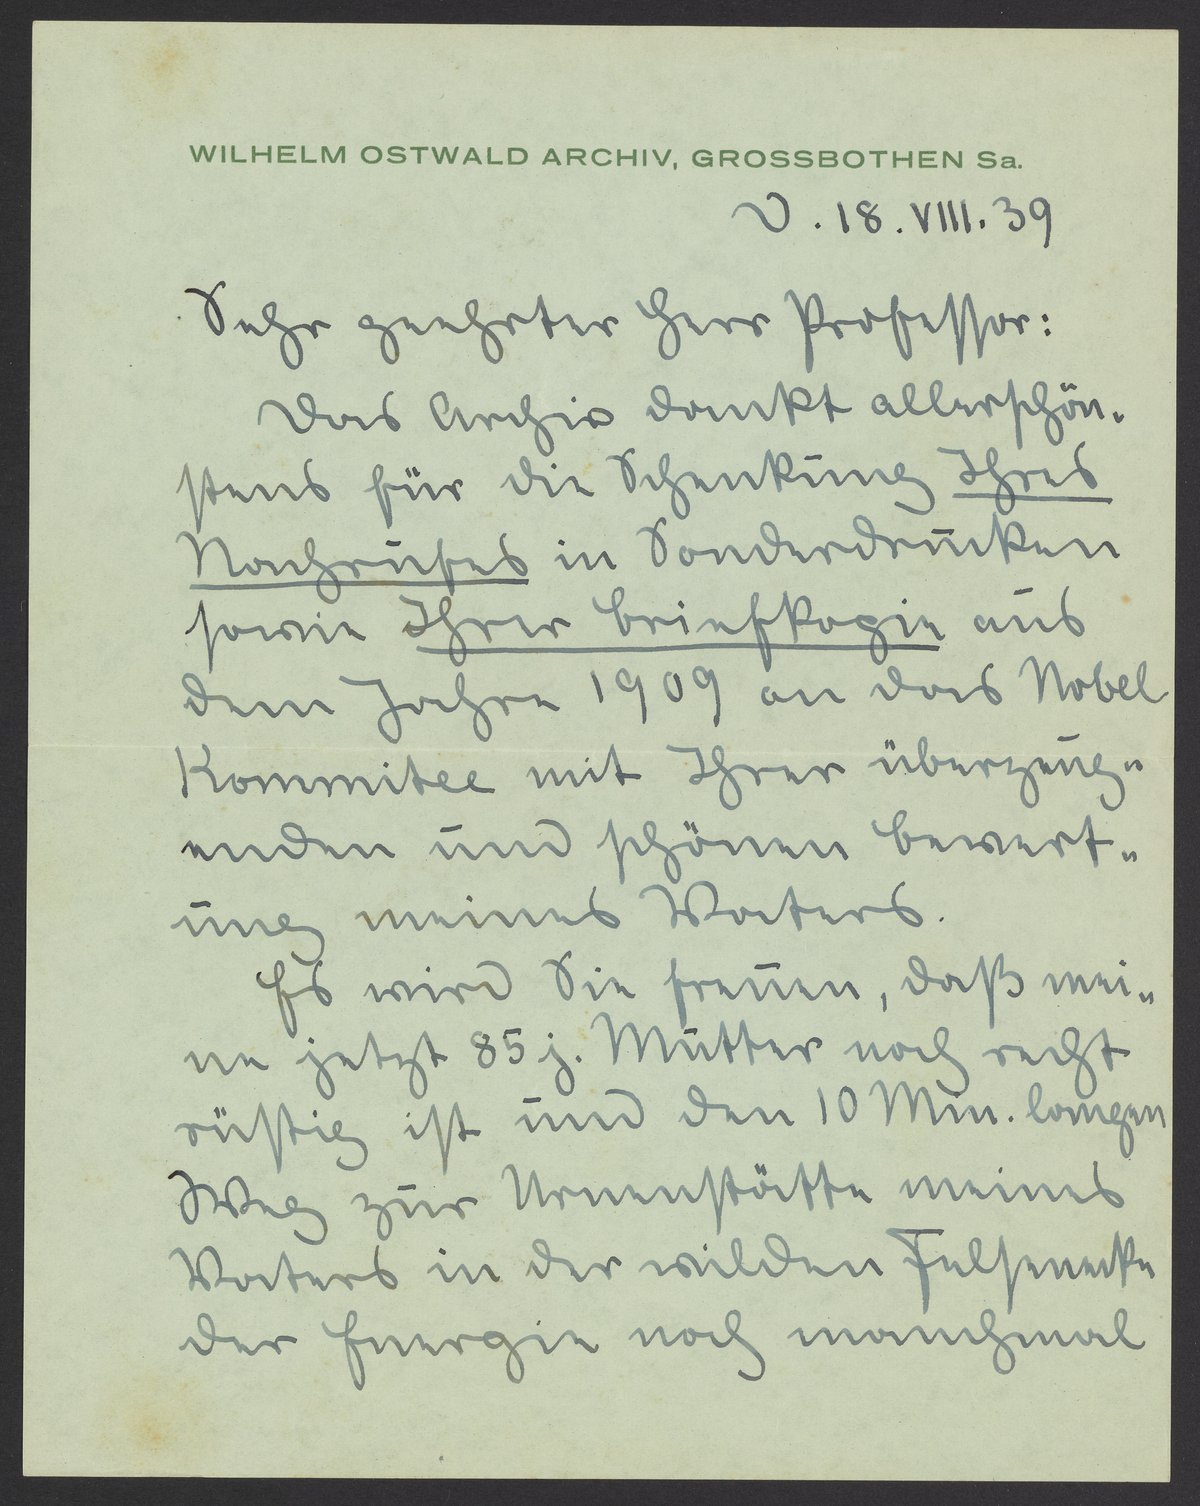 WILHELM OSTWALD ARCHIV, GROSSBOTHEN Sa.
D. 18. VIII. 39
Sehr geehrter Herr Professor:
Das Archiv dankt allerschön-
stens für die Schenkung Ihres
Nachrufes in Sonderdrucken
sowie Ihrer Briefkopie aus
dem Jahre 1909 an das Nobel
Kommitee mit Ihrer überzeug-
enden und schönen Bewert-
ung meines Vaters.
Es wird Sie freuen, daß mei-
ne jetzt 85 j. Mutter noch recht
rüstig ist und den 10 Min. langen
Weg zur Urnenstätte meines
Vaters in der wilden Felsenecke
der Energie noch manchmal